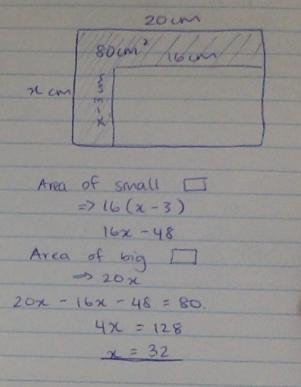 20cm
80cm²
16cm
x cm
x-3
Area of small
=> 16(x-3)
16x-48
Area of big
=> 20x
20x - 16x - 48 = 80.
4x = 128
x = 32